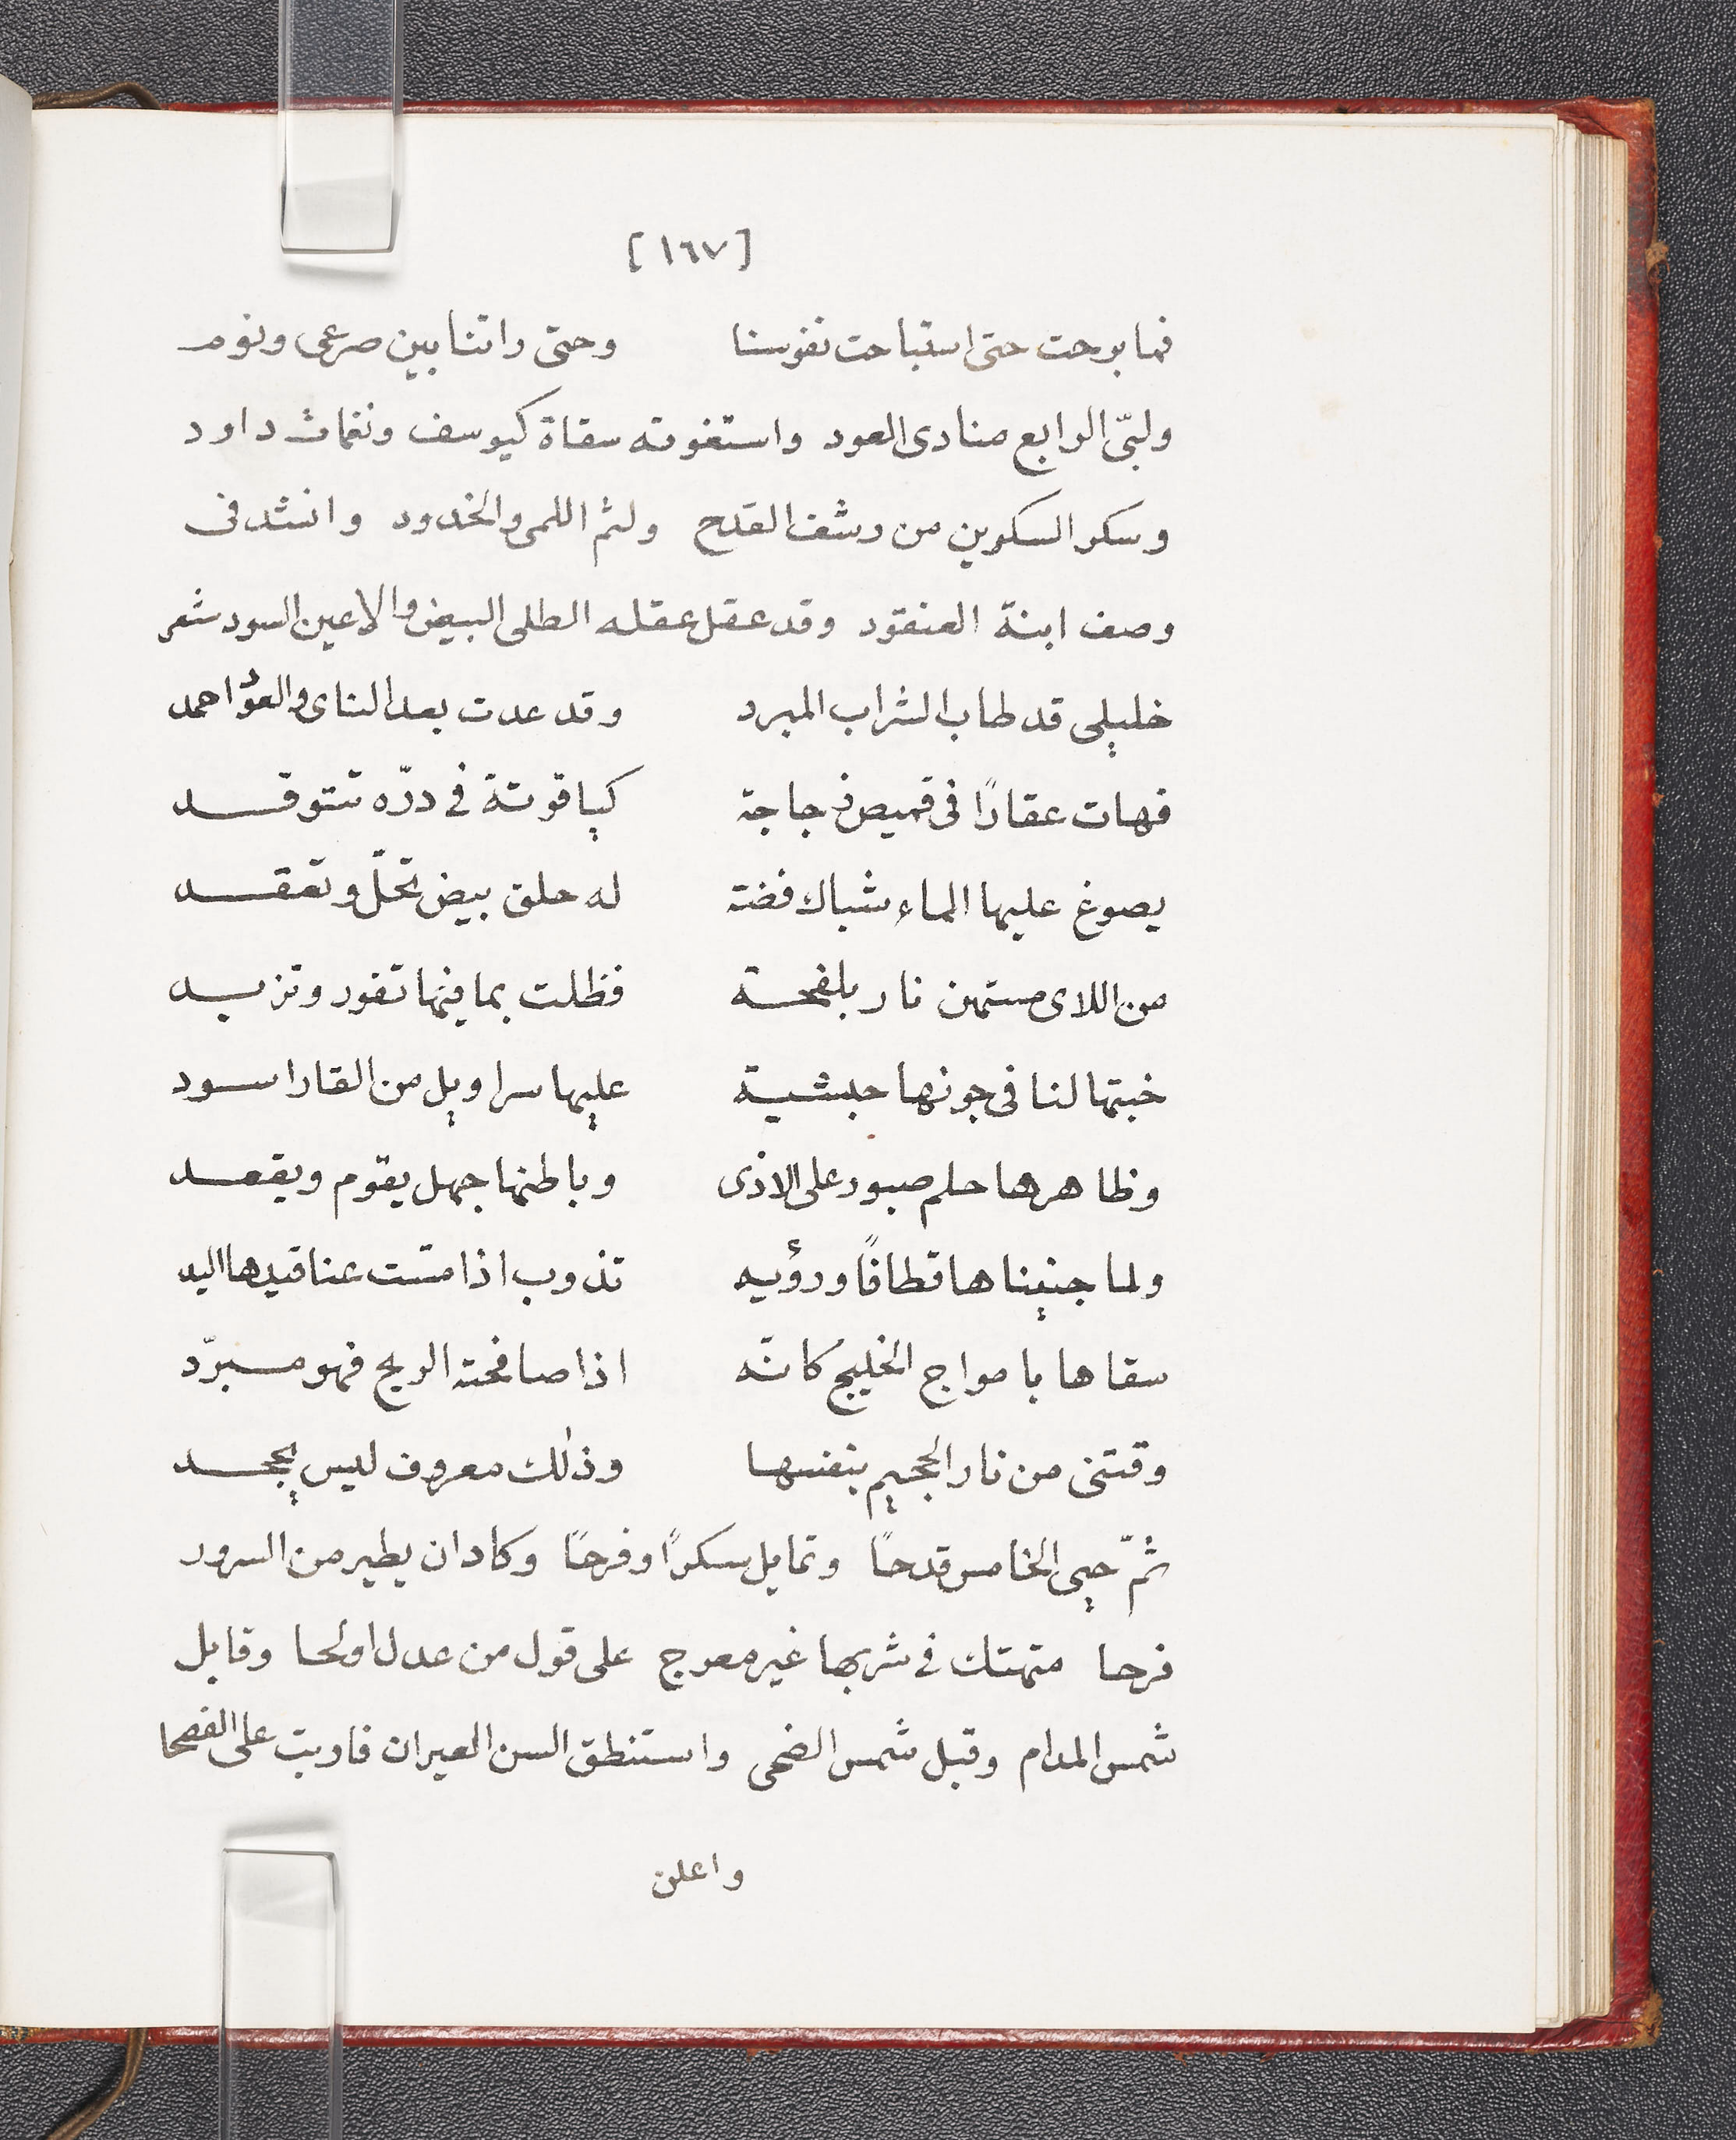 [١٦٧]
فما برحت حتى استباحت نفوسنا وحتى راتنا بين صرعى ونوم
ولبّى الرابع منادى العود واستغوته سقاة كيوسف ونغمات داود
وسكر السكرين من رشف القدح ولثم اللمى والخدود وانشد فى
وصف ابنة العنقود وقد عقل عقله الطلى البيض والاعين السود شعر
خليلى قد طاب الشراب المبرد وقد عدت بعد الناى والعود احمد
فهات عقارًا فى قميص زجاجة كياقوتة فى درّه تتوقد
يصوغ عليها الماء شباك فضة له حلق بيض تحلّ وتعقد
من اللاى مستهن نار بلفحة فظلت بما فيها تفور وتزبد
خبتها لنا فى جونها حبشية عليها سراويل من القار اسود
وظاهرها حلم صبور على الاذى وباطنها جهل يقوم ويقعد
ولما جنيناها قطافًا ورؤيه تذوب اذا مسّت عناقيدها اليد
سقاها بامواج الخليج كانّه اذا صافحته الريح فهو مبرّد
وقتنى من نار الجحيم بنفسها وذلك معروف ليس يجحد
ثمّ حيى الخامس قدحًا وتمايل سكرًا وفرحًا وكاد ان يطير من السرور
فرحا متهتك فى شربها غير معرج على قول من عدل اولحا وقابل
شمس المدام وقبل شمس الضحى واستنطق السن العيدان فاربت على الفصحا
واعلن